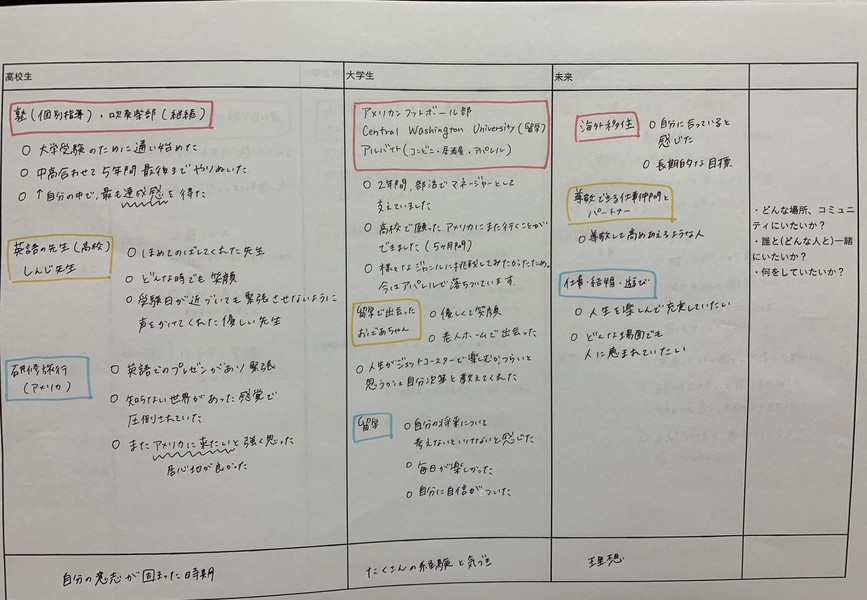 高校生
塾(個別指導)・吹奏楽部(継続)
○ 大学受験のために通い始めた
○ 中高合わせて5年間最後までやりぬいた
○ ↑自分の中で、最も達成感を得た
英語の先生(高校)
しんじ先生
○ ほめてのばしてくれた先生
○ どんな時でも笑顔
○ 受験日が近づいても緊張させないように
声をかけてくれた優しい先生
研修旅行
(アメリカ)
○ 英語でのプレゼンがあり緊張
○ 知らない世界があった感覚で
圧倒されていた
○ またアメリカに来たいと強く思った
居心地が良かった
自分の意志が固まった時期
大学生
アメリカンフットボール部
Central Washington University(留学)
アルバイト(コンビニ・居酒屋・アパレル)
○ 2年間、部活でマネージャーとして
支えていました
○ 高校で願ったアメリカにまた行くことが
できました(5ヶ月間)
○ 様々なジャンルに挑戦してみたかったため、
今はアパレルで落ちついています
留学で出会った
おばあちゃん
○ 優しくて笑顔
○ 老人ホームで出会った
○ 人生がジェットコースターで楽しむかつらいと
思うかは自分次第と教えてくれた
留学
○ 自分の将来について
考えないといけないと感じた
○ 毎日が楽しかった
○ 自分に自信がついた
たくさんの経験と気づき
未来
海外移住
○ 自分に合っていると
感じた
○ 長期的な目標
尊敬できる仕事仲間と
パートナー
○ 尊敬して高めあえるような人
仕事・結婚・遊び
○ 人生を楽しんで充実していたい
○ どんな場面でも
人に恵まれていたい
理想
・どんな場所、コミュニ
ティにいたいか?
・誰と(どんな人と)一緒
にいたいか?
・何をしていたいか?